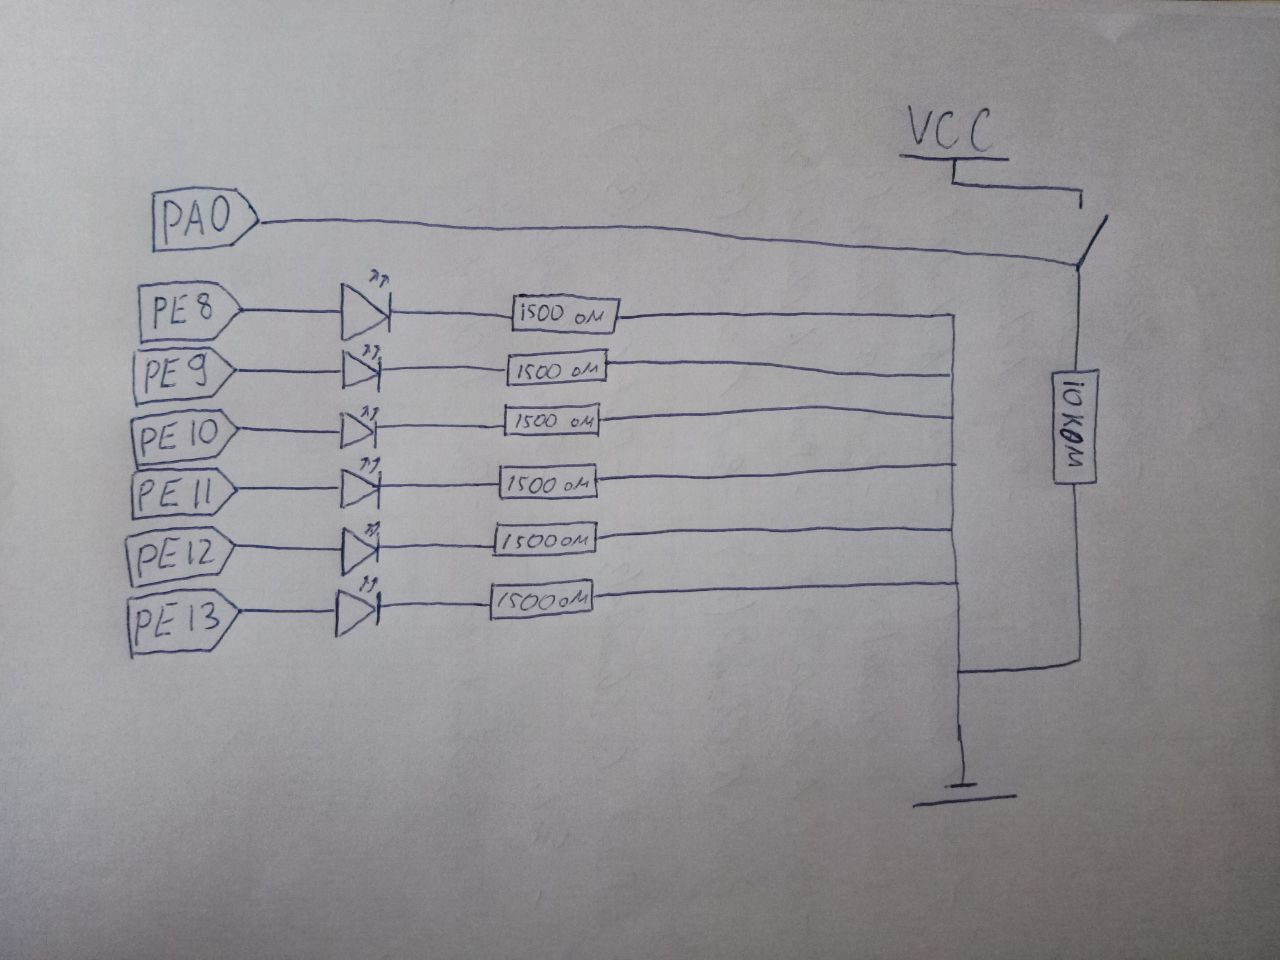 VCC
PA0
PE8
1500 ом
PE9
1500 ом
PE10
1500 ом
PE11
1500 ом
PE12
1500 ом
PE13
1500 ом
10 ком